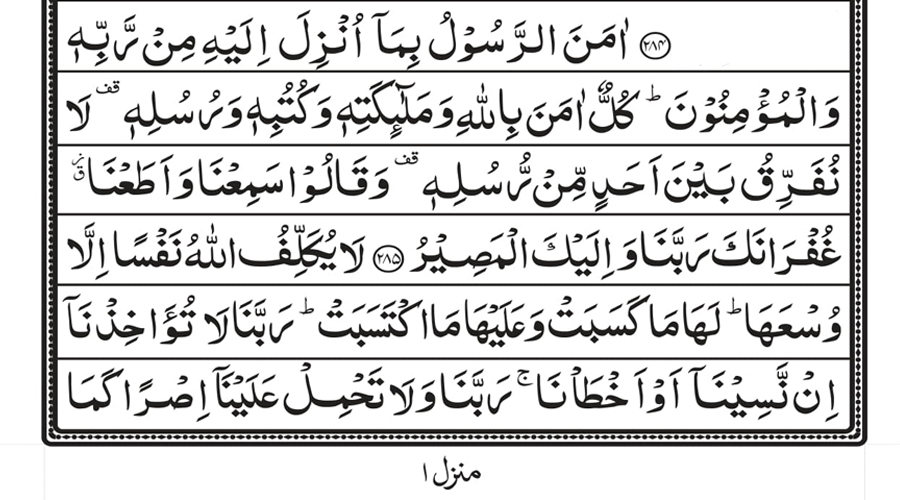 ﴿۲۸۴﴾ اٰمَنَ الرَّسُوۡلُ بِمَاۤ اُنۡزِلَ اِلَيۡهِ مِنۡ رَّبِّهٖ
وَالۡمُؤۡمِنُوۡنَ ؕ كُلٌّ اٰمَنَ بِاللّٰهِ وَمَلٰٓئِكَتِهٖ وَكُتُبِهٖ وَرُسُلِهٖ قف لَا
نُفَرِّقُ بَيۡنَ اَحَدٍ مِّنۡ رُّسُلِهٖ قف وَقَالُوۡا سَمِعۡنَا وَاَطَعۡنَا ق ز
غُفۡرَانَكَ رَبَّنَا وَاِلَيۡكَ الۡمَصِيۡرُ ﴿۲۸۵﴾ لَا يُكَلِّفُ اللّٰهُ نَفۡسًا اِلَّا
وُسۡعَهَا ؕ لَهَا مَا كَسَبَتۡ وَعَلَيۡهَا مَا اكۡتَسَبَتۡ ؕ رَبَّنَا لَا تُؤَاخِذۡنَاۤ
اِنۡ نَّسِيۡنَاۤ اَوۡ اَخۡطَاۡنَا ۚ رَبَّنَا وَلَا تَحۡمِلۡ عَلَيۡنَاۤ اِصۡرًا كَمَا
منزل ۱